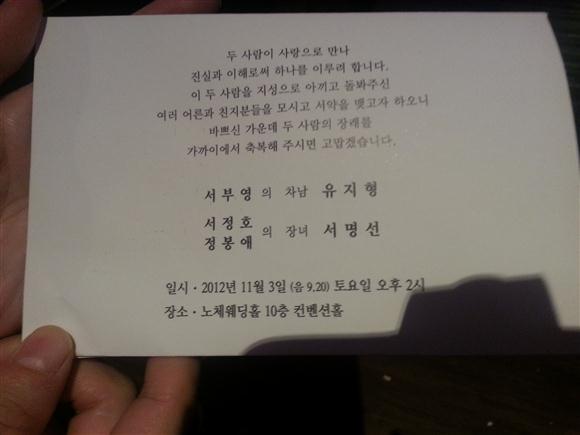 두 사람이 사랑으로 만나
진실과 이해로써 하나를 이루려 합니다.
이 두 사람을 지성으로 아끼고 돌봐주신
여러 어른과 친지분들을 모시고 서약을 맺고자 하오니
바쁘신 가운데 두 사람의 장래를
가까이에서 축복해 주시면 고맙겠습니다.
서부영의 차남 유지형
서정호
정봉애 의 장녀 서명선
일시 · 2012년 11월 3일 (음 9.20) 토요일 오후 2시
장소 · 노체웨딩홀 10층 컨벤션홀